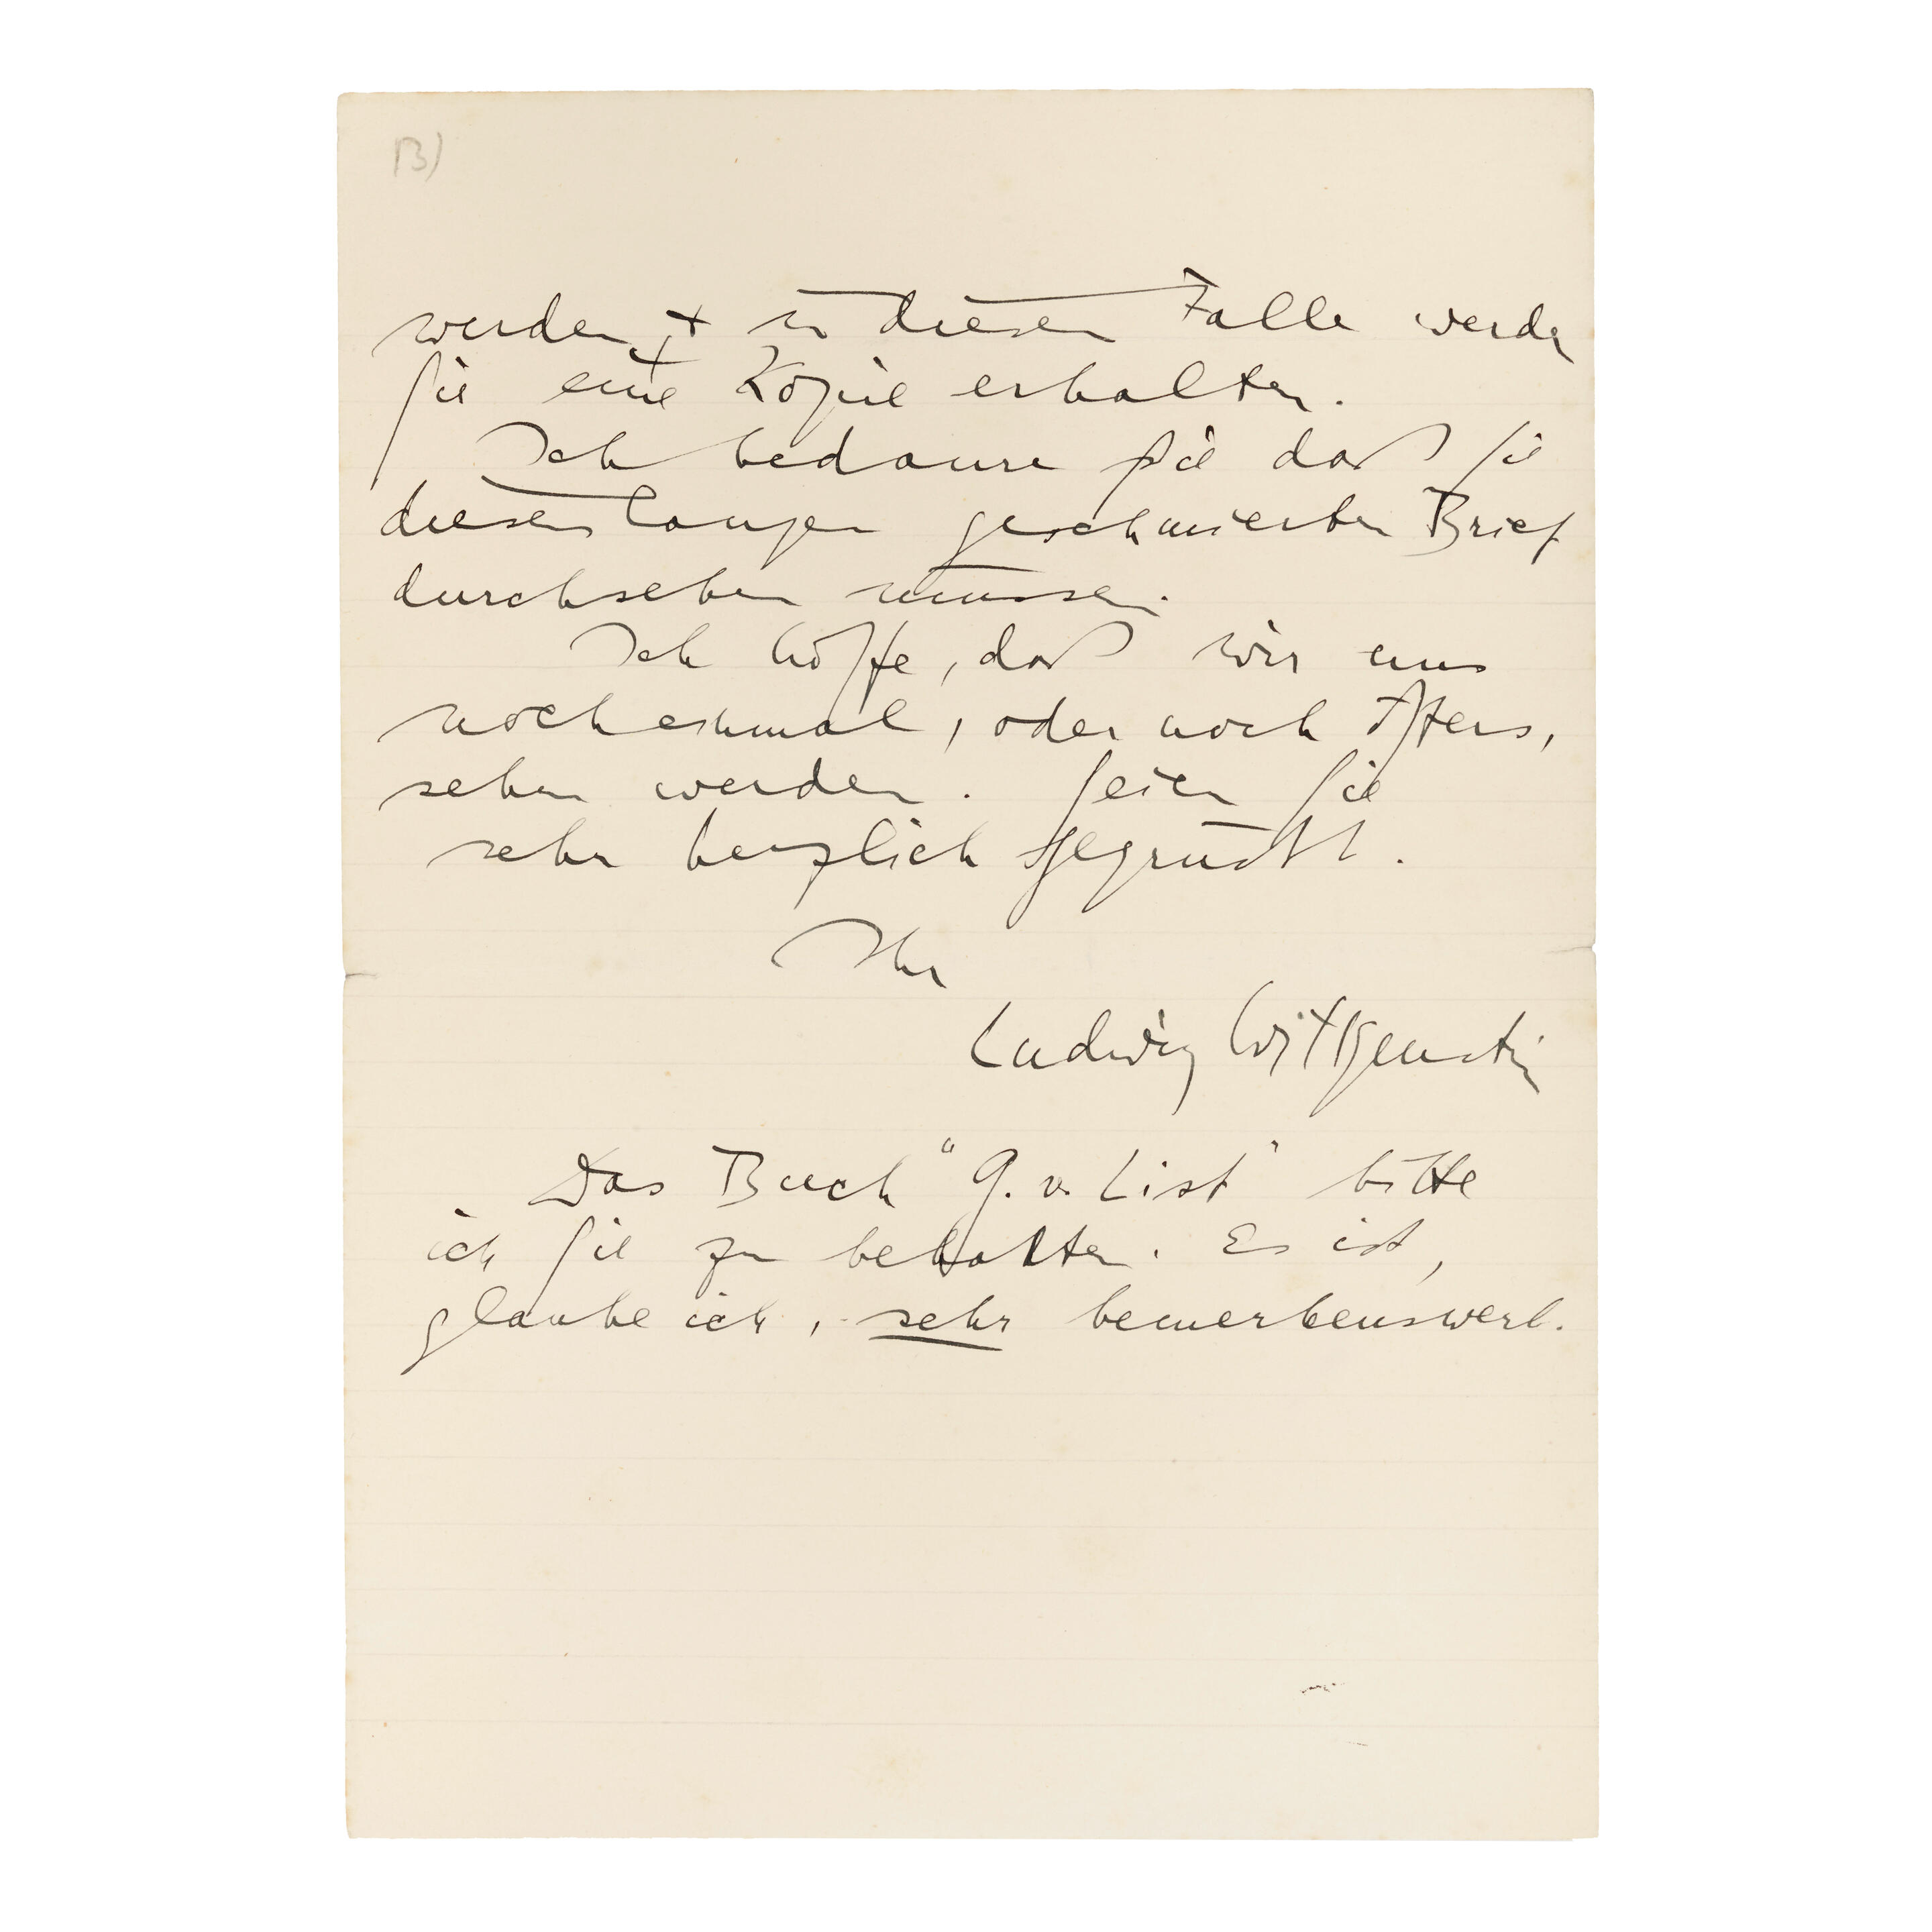 B)
werden, + in diesem Falle werden
Sie eine Kopie erhalten.
Ich bedaure Sie daß Sie
diesen langen geschmierten Brief
durchsehen müssen.
Ich hoffe, daß wir uns
nocheinmal, oder noch öfters,
sehen werden. Seien Sie
sehr herzlich gegrüßt.
Ihr
Ludwig Wittgenstein
Das Buch "G. v. List" bitte
ich Sie zu behalten. Es ist,
glaube ich, sehr bemerkenswert.